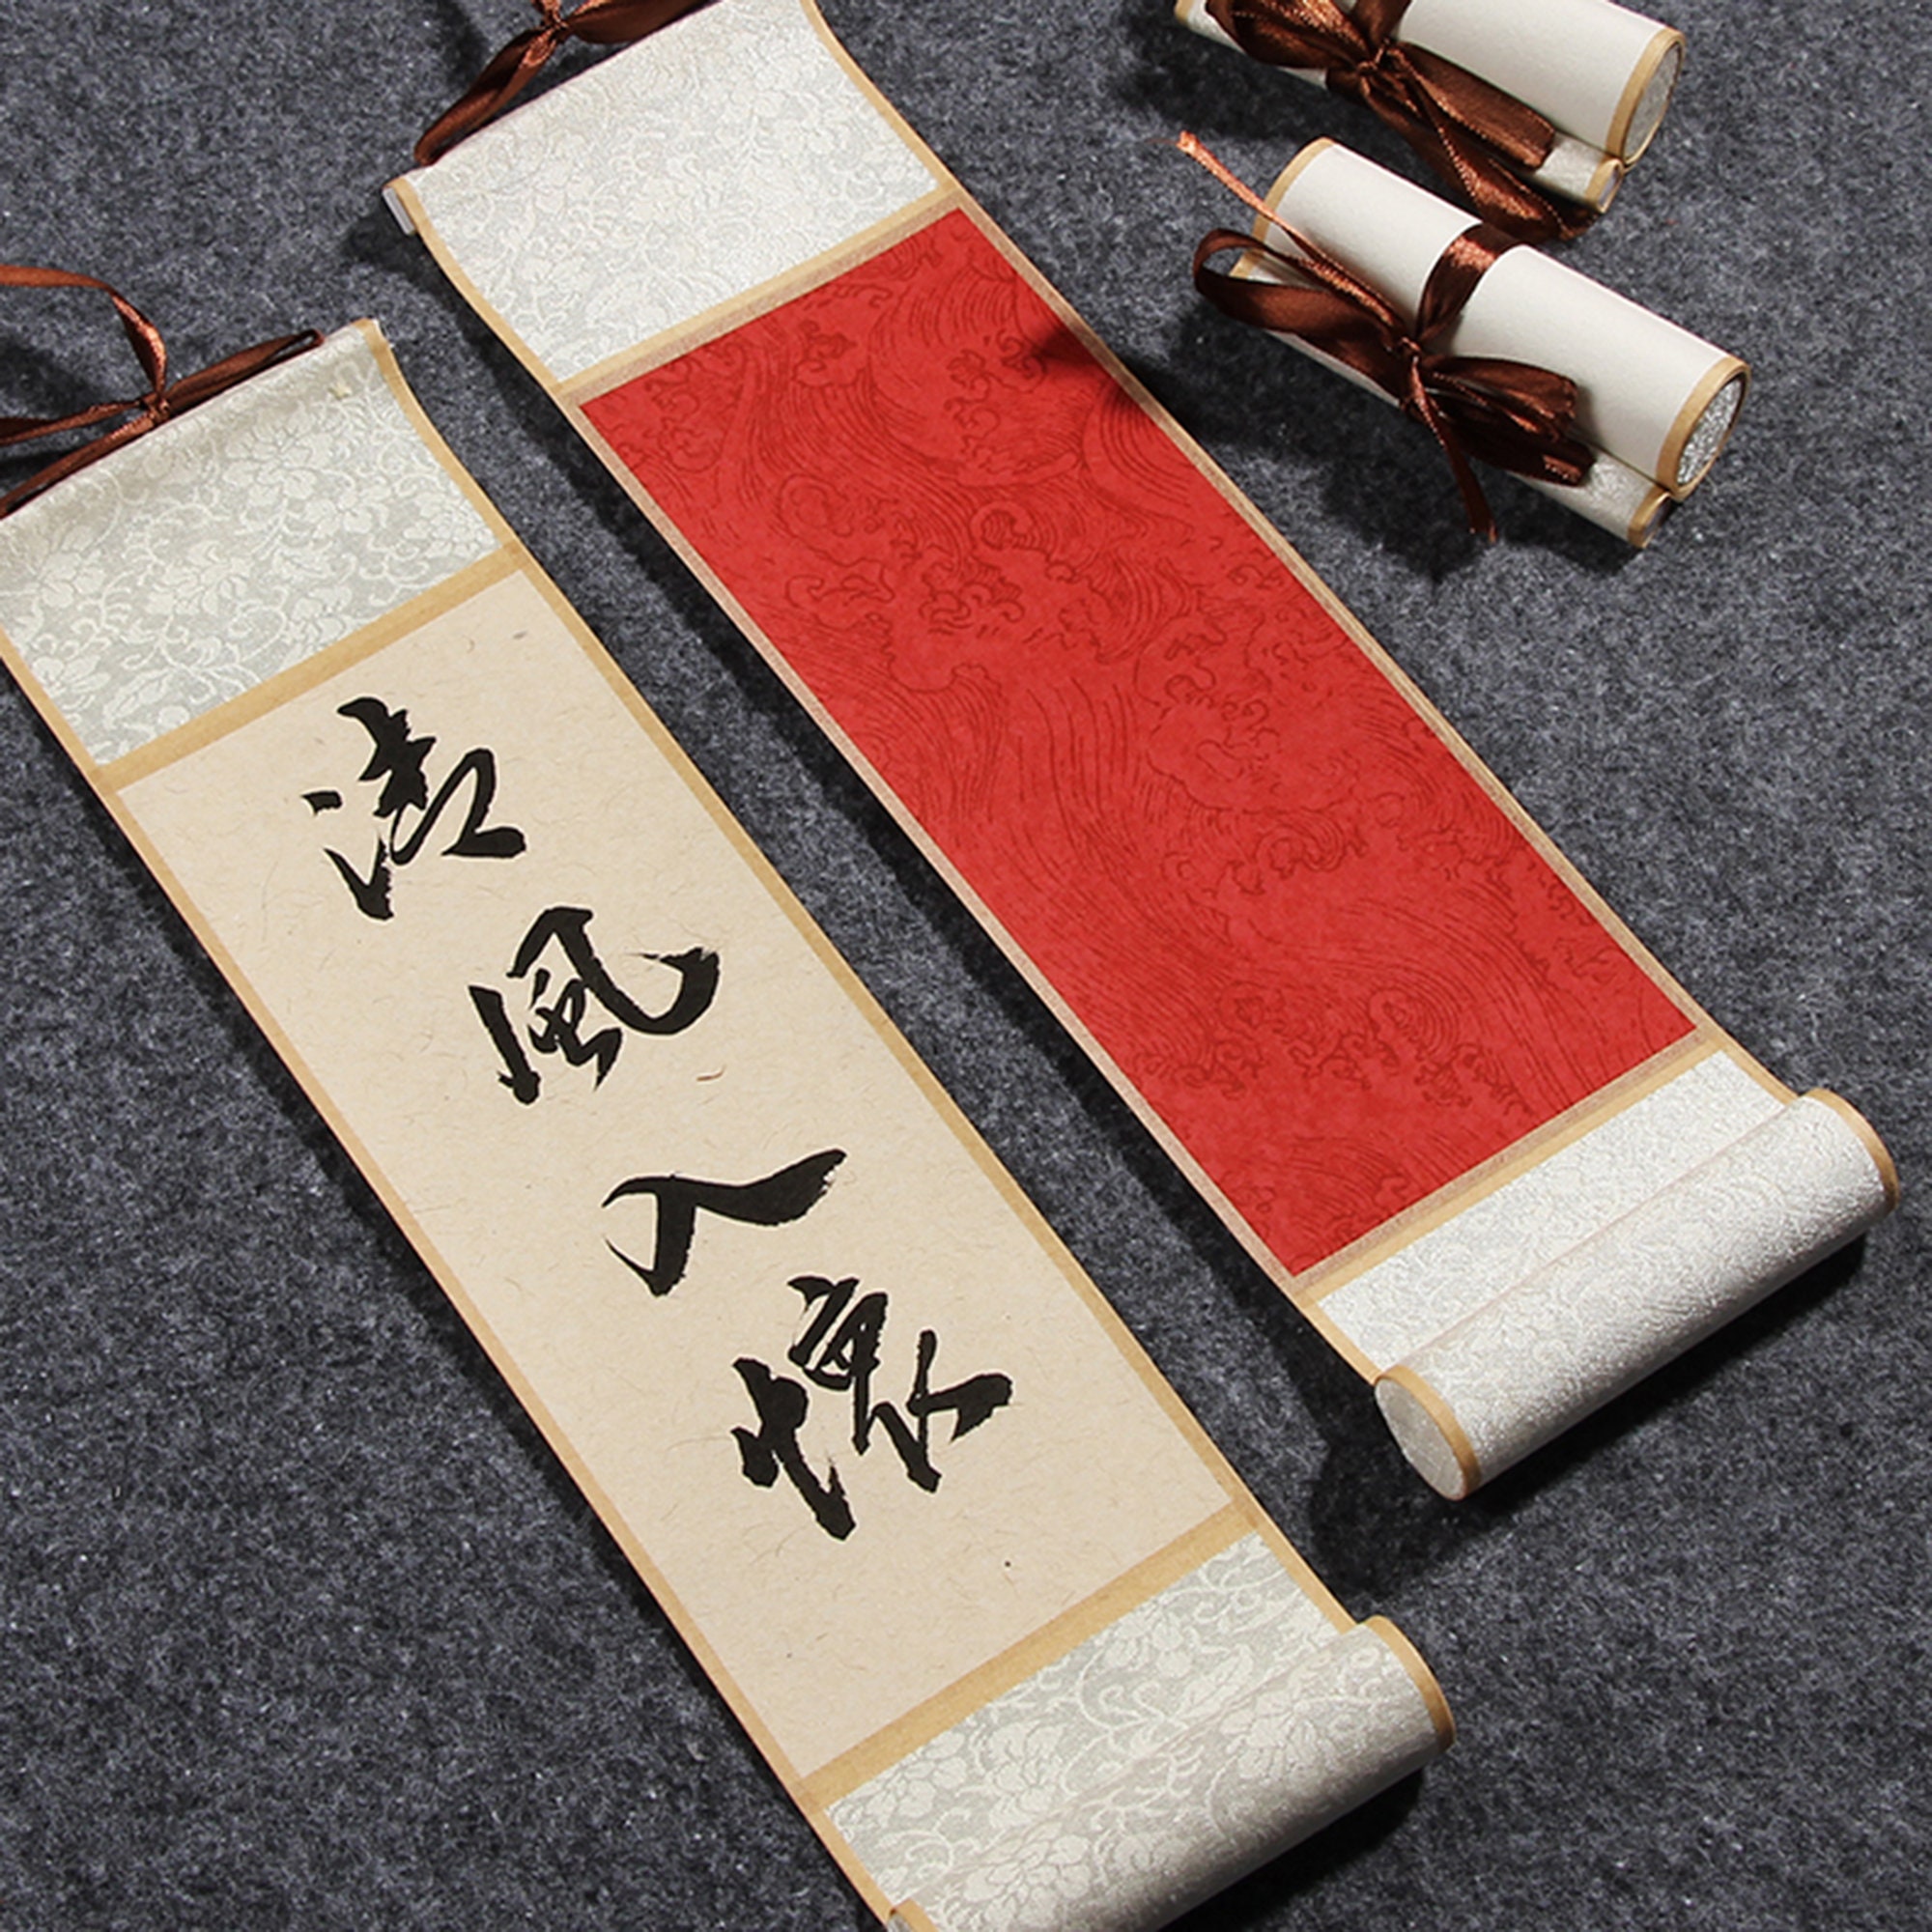 清風入懷